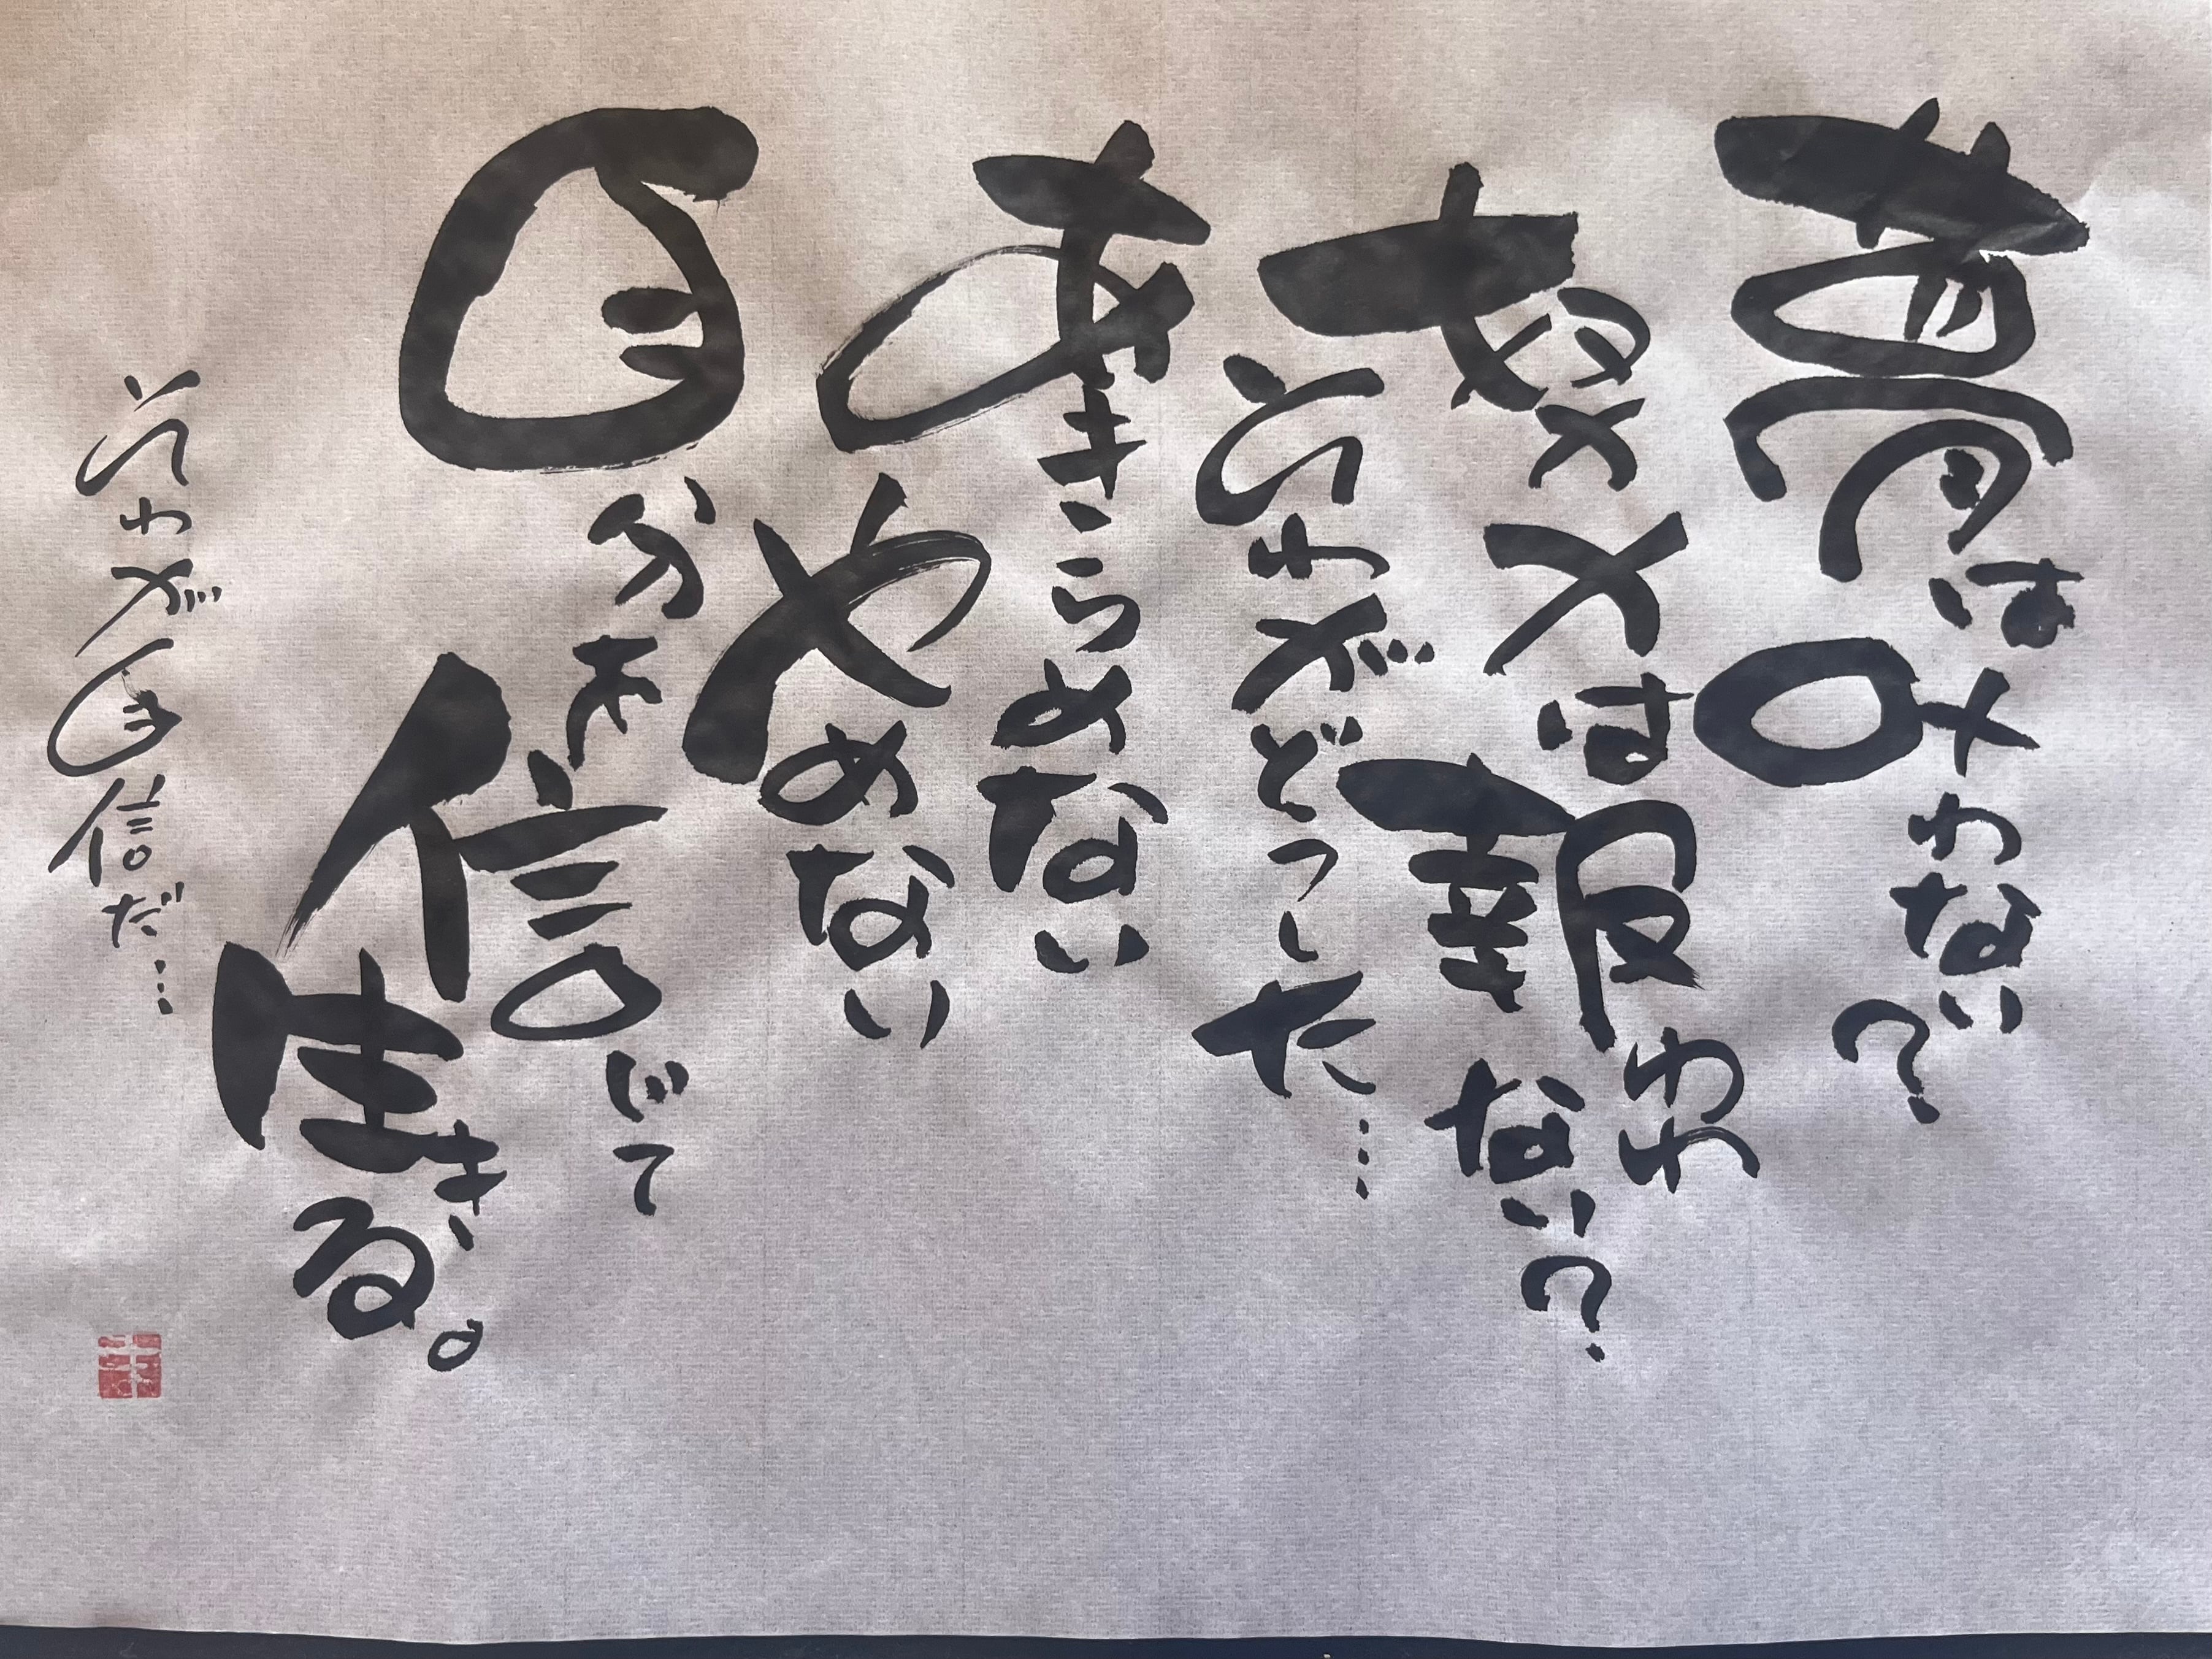 夢は叶わない?
努力は報われない?
それがどうした…
あきらめない
やめない
自分を信じて
生きる。
それが自信だ…